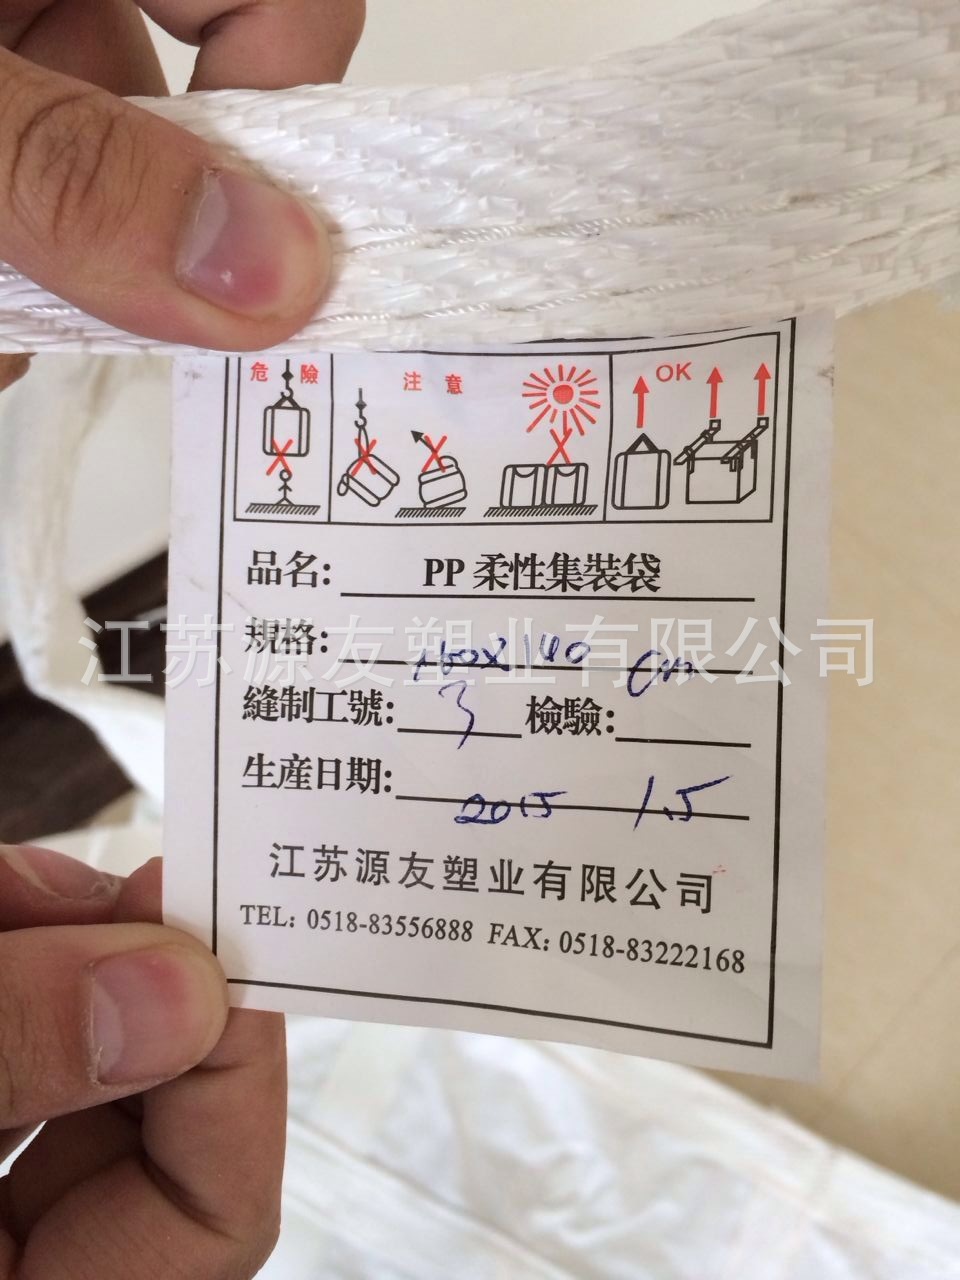 危險
注意
OK
品名: PP 柔性集裝袋
江苏源友塑业有限公司
規格: 160X140 cm
縫制工號: 3 檢驗:
生産日期: 2015 1.5
江苏源友塑业有限公司
TEL: 0518-83556888 FAX: 0518-83222168